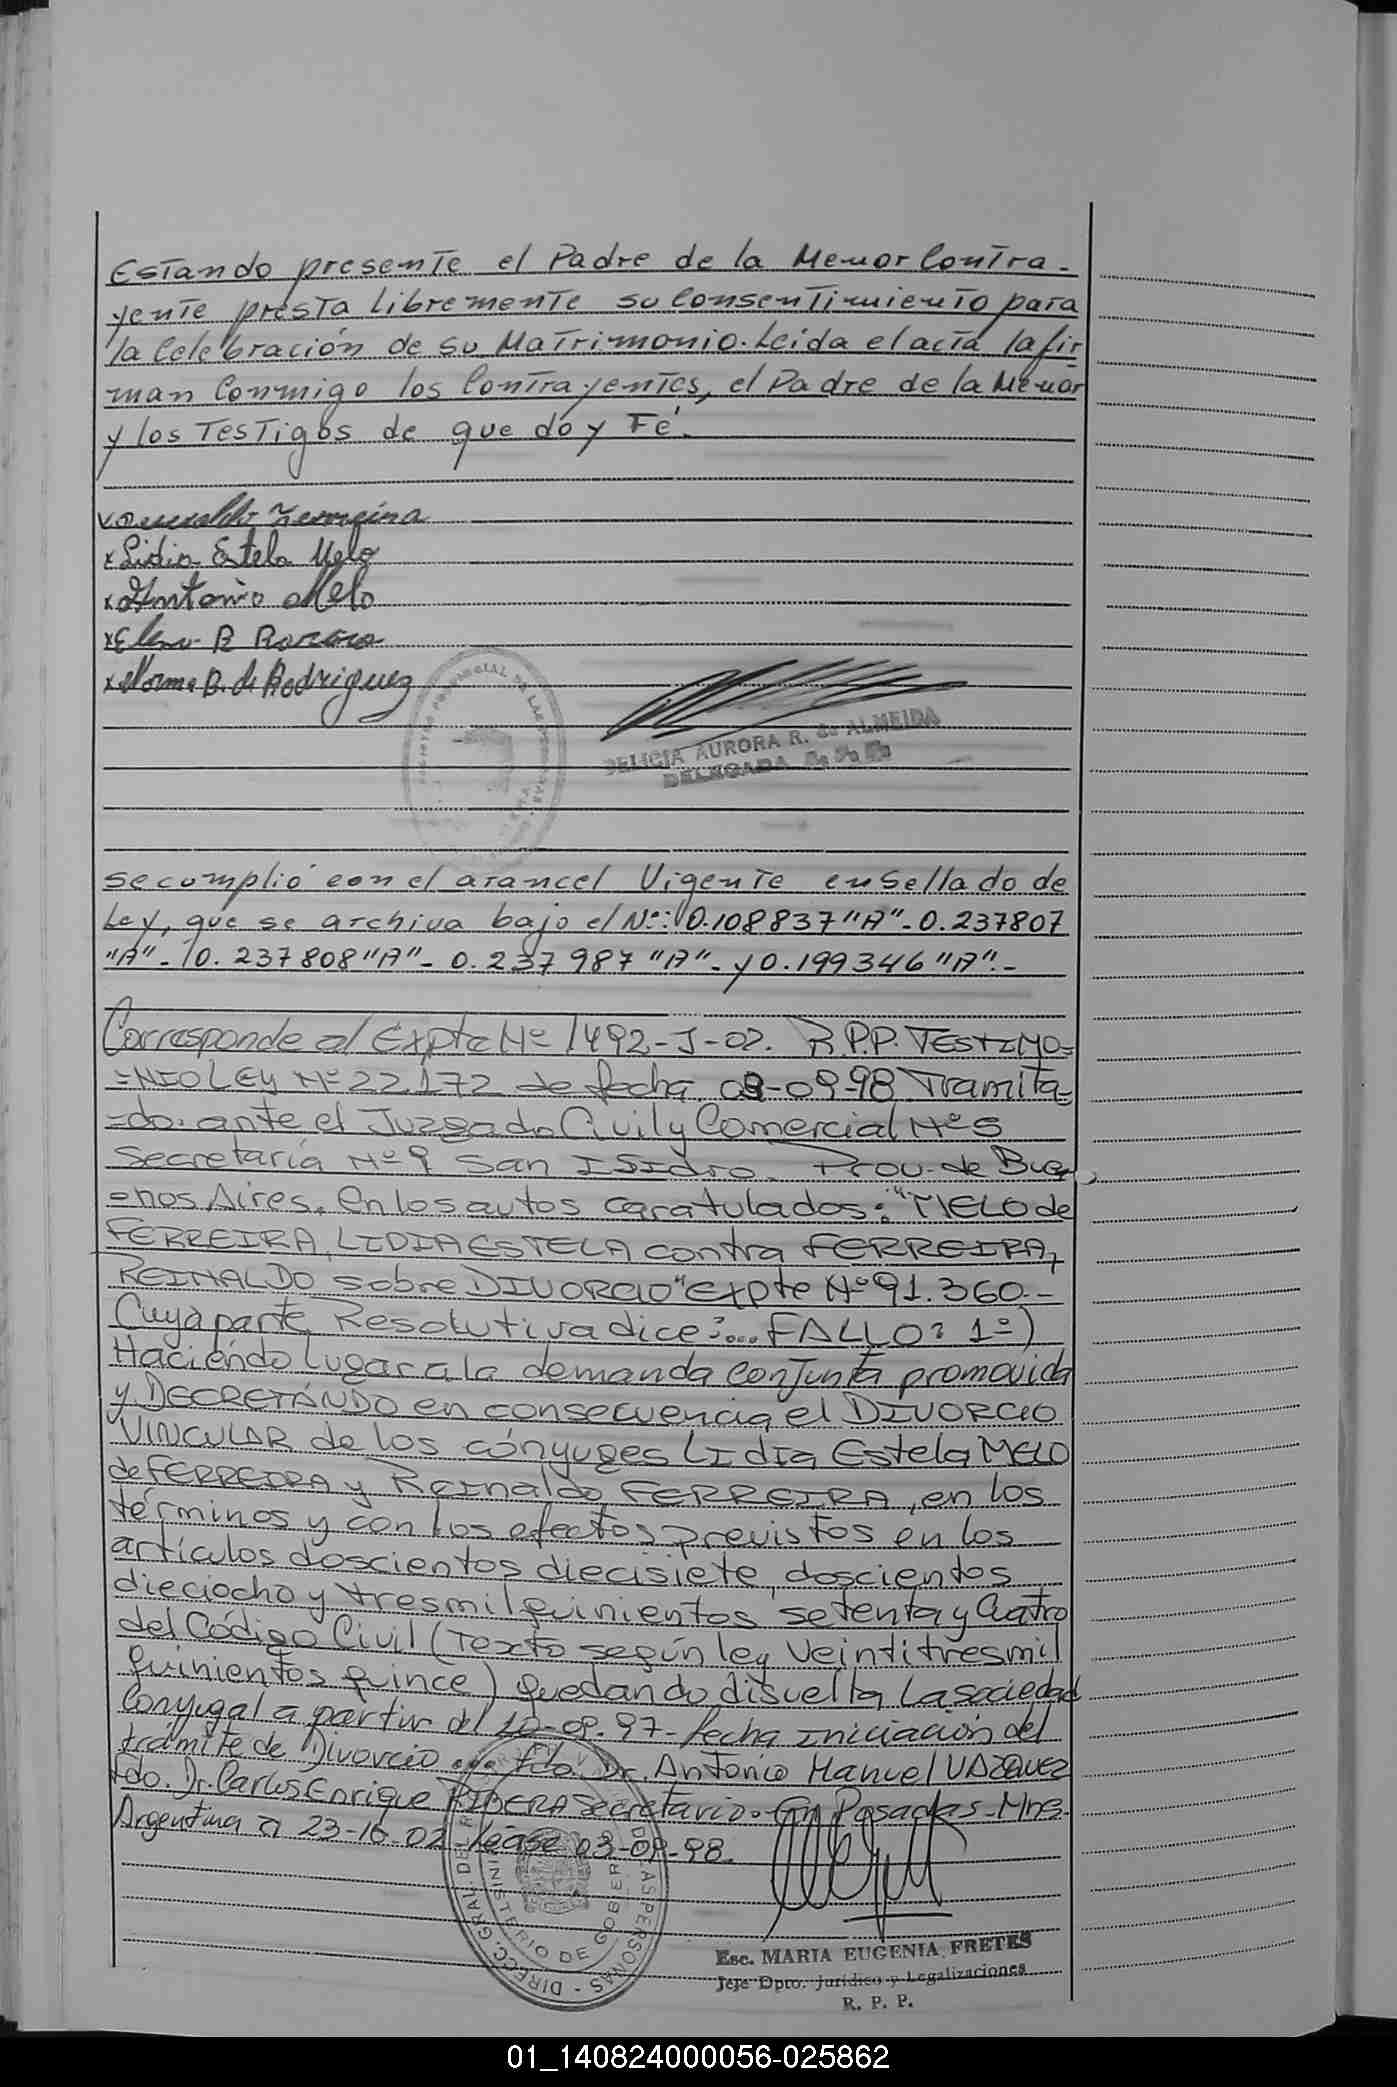 Estando presente el Padre de la Menor Contra-
yente presta Libremente su Consentimiento para
la Celebración de su Matrimonio. Leida el acta la fir
man Conmigo los Contrayentes, el Padre de la Menor
y los Testigos de que doy Fé.
Ferreira
x Lidia Estela Melo
x Antonio Melo
x Elena B
x Norma B. de Rodriguez
DELICIA AURORA R. de ALMEIDA
DELEGADA
se cumplió con el arancel Vigente en Sellado de
Ley, que se archiva bajo el Nº: 0.108837 "A" - 0.237807
"A" - 0.237808 "A" - 0.237987 "A" - y 0.199346 "A". -
Corresponde al Expte Nº 1492-J-02. R.P.P. TESTIMO=
=NIO LEY Nº 22.172 de fecha 03-09-98 Tramita=
=do. ante el Juzgado Civil y Comercial Nº 5
Secretaría Nº 9 San ISIdro. Prov. de Bue
=nos Aires. En los autos caratulados: "MELO de
FERREIRA, LIDIA ESTELA contra FERREIRA,
REINALDO sobre DIVORCIO" expte Nº 91.360.-
Cuya parte Resolutiva dice:... FALLO: 1º)
Haciendo Lugar a la demanda conjunta promovida
y DECRETÁNDO en consecuencia el DIVORCIO
VINCULAR de los cónyuges LIdia Estela MELO
de FERREIRA y Reinaldo FERREIRA, en los
términos y con los efectos previstos en los
artículos doscientos diecisiete, doscientos
dieciocho y tres mil quinientos setenta y Cuatro
del Código Civil (Texto según ley Veintitres mil
quinientos quince) quedando disuelta La sociedad
Conyugal a partir del 12-08-97 - fecha iniciación del
trámite de Divorcio ... Fdo. Dr. Antonio Manuel VAZQUEZ
Fdo. Dr. Carlos Enrique RIBERA Secretario. En Posadas - Mnes.
Argentina a 23-10-02 - Léase 03-09-98.
DIRECC. GRAL. DE
LAS PERSONAS
MINISTERIO DE GOBIERNO
Esc. MARIA EUGENIA FRETES
Jefe Dpto. Jurídico y Legalizaciones
R. P. P.
01_140824000056-025862